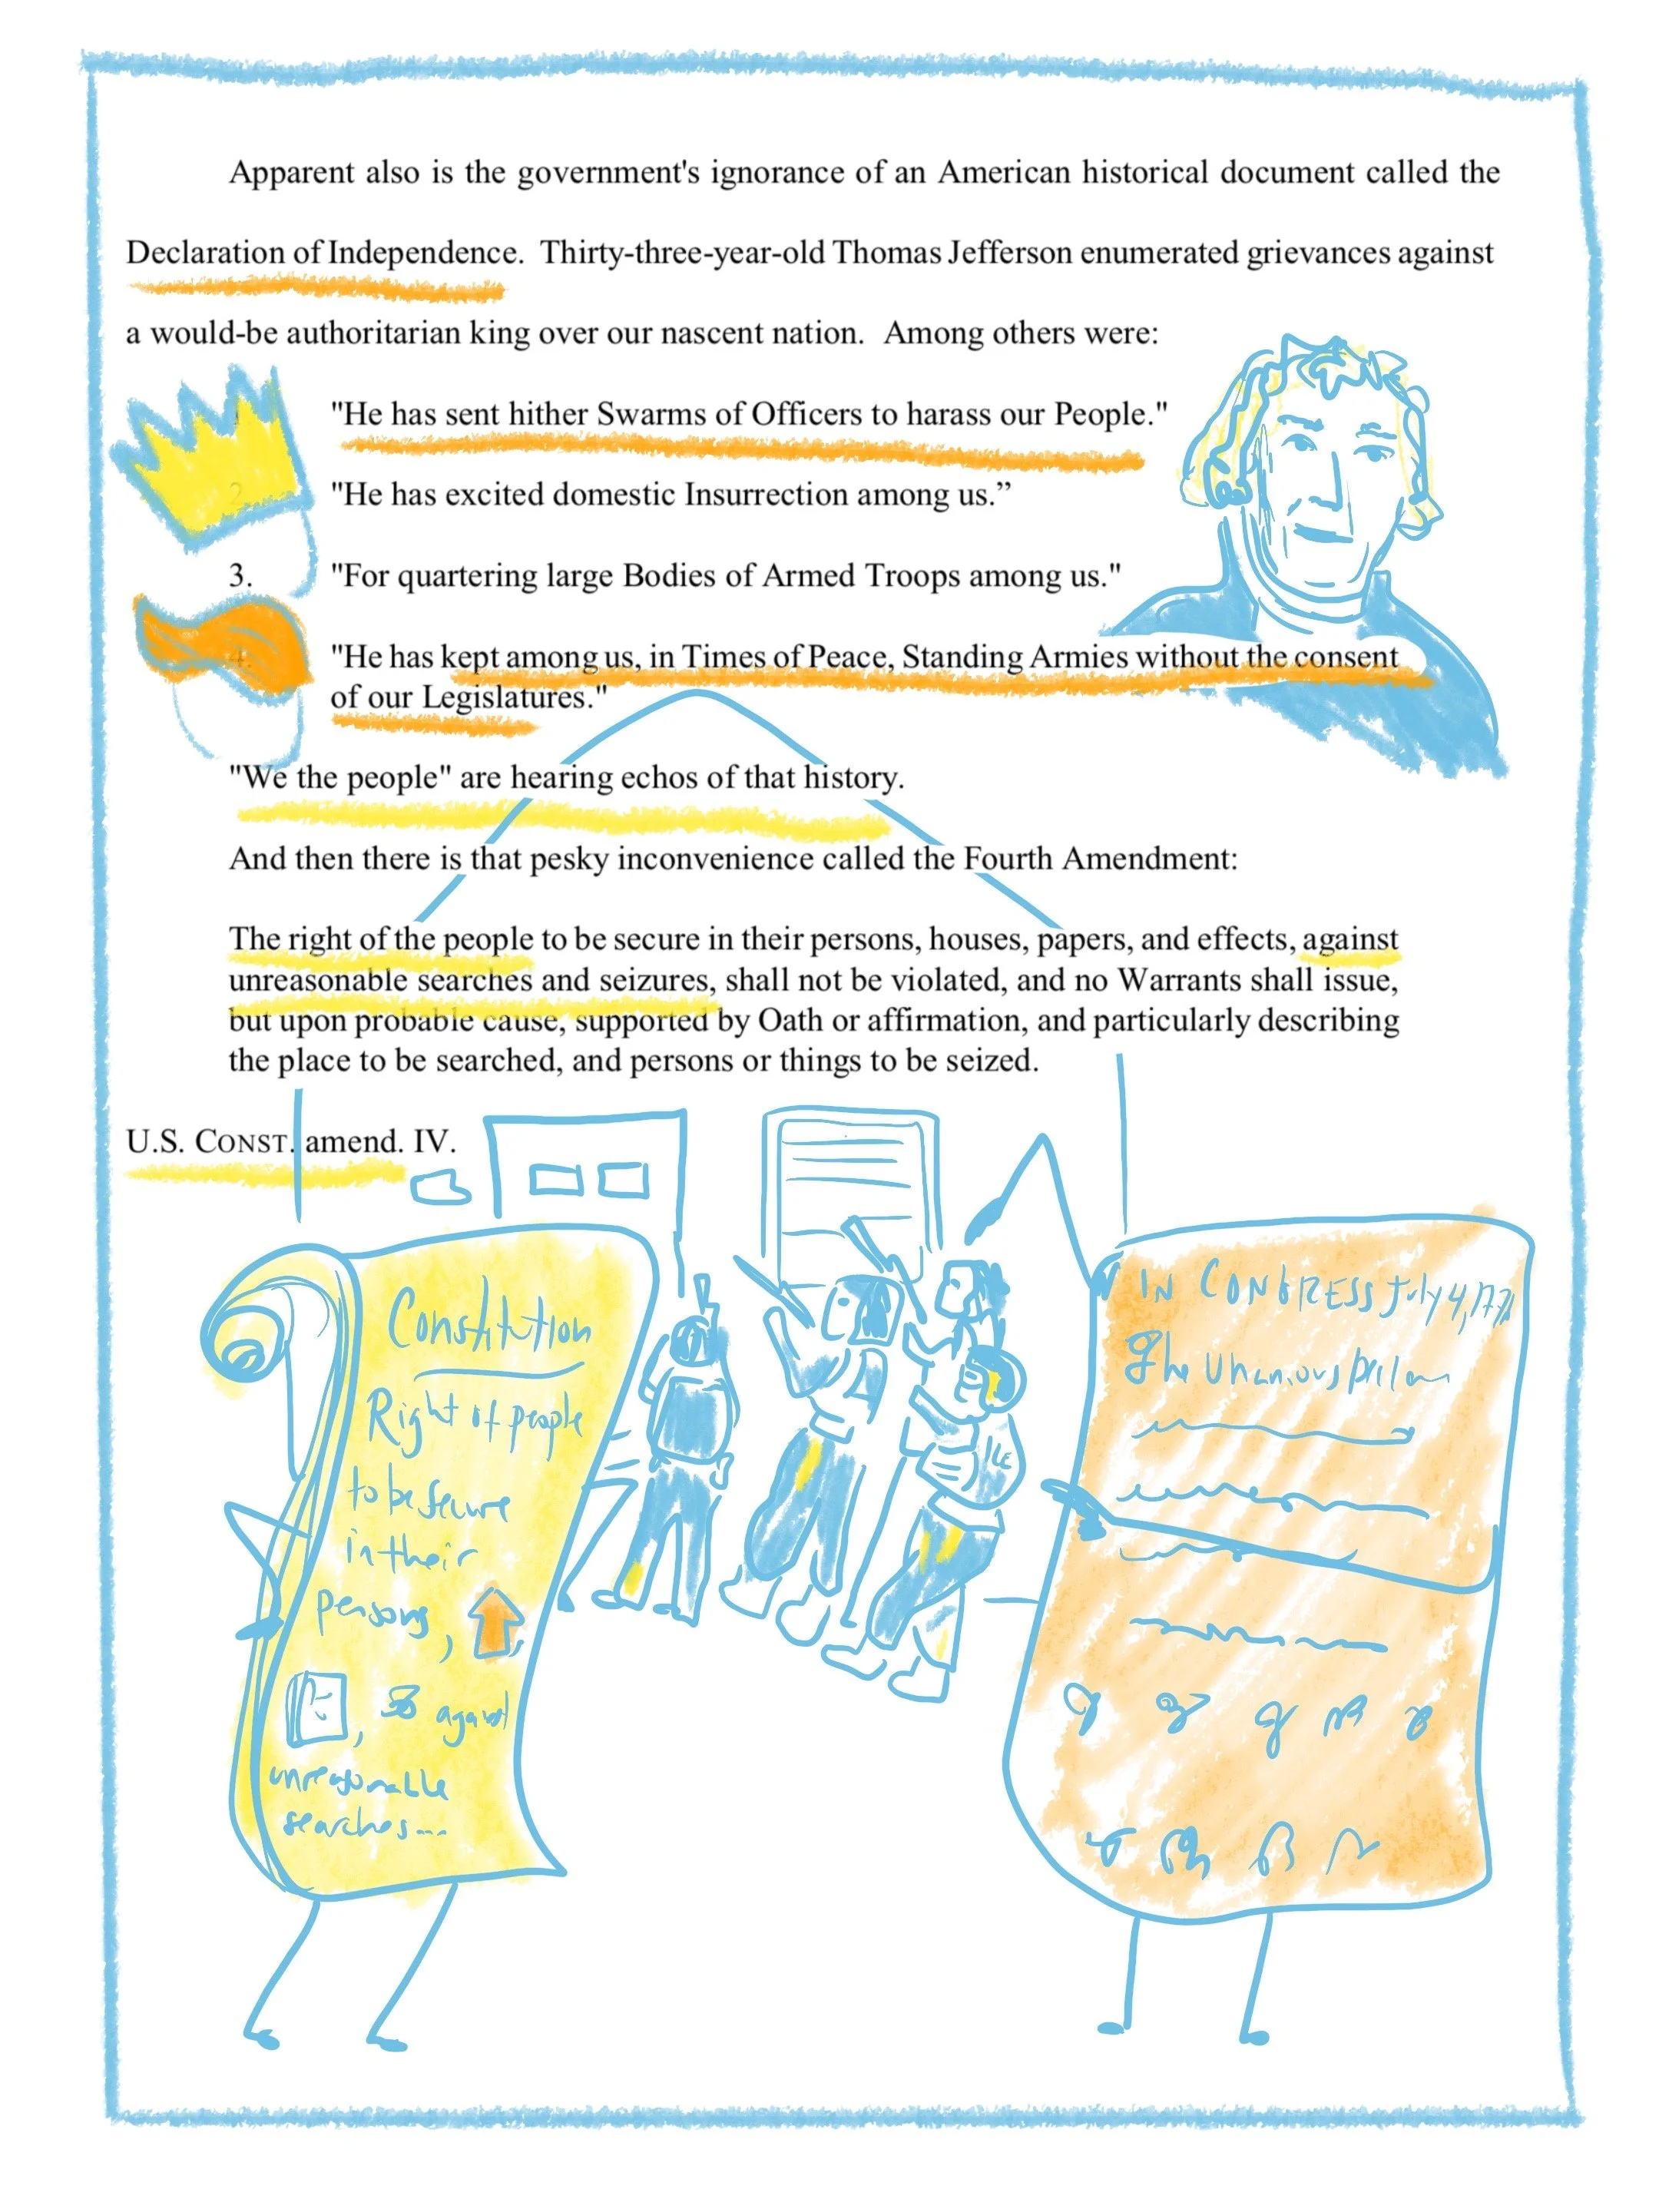 Apparent also is the government's ignorance of an American historical document called the
Declaration of Independence. Thirty-three-year-old Thomas Jefferson enumerated grievances against
a would-be authoritarian king over our nascent nation. Among others were:
1. "He has sent hither Swarms of Officers to harass our People."
2. "He has excited domestic Insurrection among us.”
3. "For quartering large Bodies of Armed Troops among us."
4. "He has kept among us, in Times of Peace, Standing Armies without the consent
of our Legislatures."
"We the people" are hearing echos of that history.
And then there is that pesky inconvenience called the Fourth Amendment:
The right of the people to be secure in their persons, houses, papers, and effects, against
unreasonable searches and seizures, shall not be violated, and no Warrants shall issue,
but upon probable cause, supported by Oath or affirmation, and particularly describing
the place to be searched, and persons or things to be seized.
U.S. CONST. amend. IV.
Constitution
Right of people
to be secure
in their
persons,
, against
unreasonable
searches...
ICE
IN CONGRESS July 4, 
The